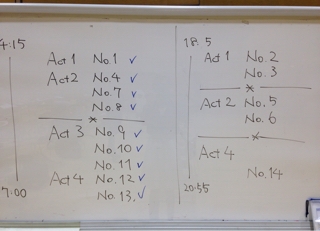 4:15
Act 1 No.1 ✓
Act 2 No.4 ✓
No.7 ✓
No.8 ✓
Act 3 No.9 ✓
No.10 ✓
No.11 ✓
Act 4 No.12 ✓
No.13. ✓
7:00
18:5
Act 1 No.2
No.3
Act 2 No.5
No.6
Act 4
No.14
20:55